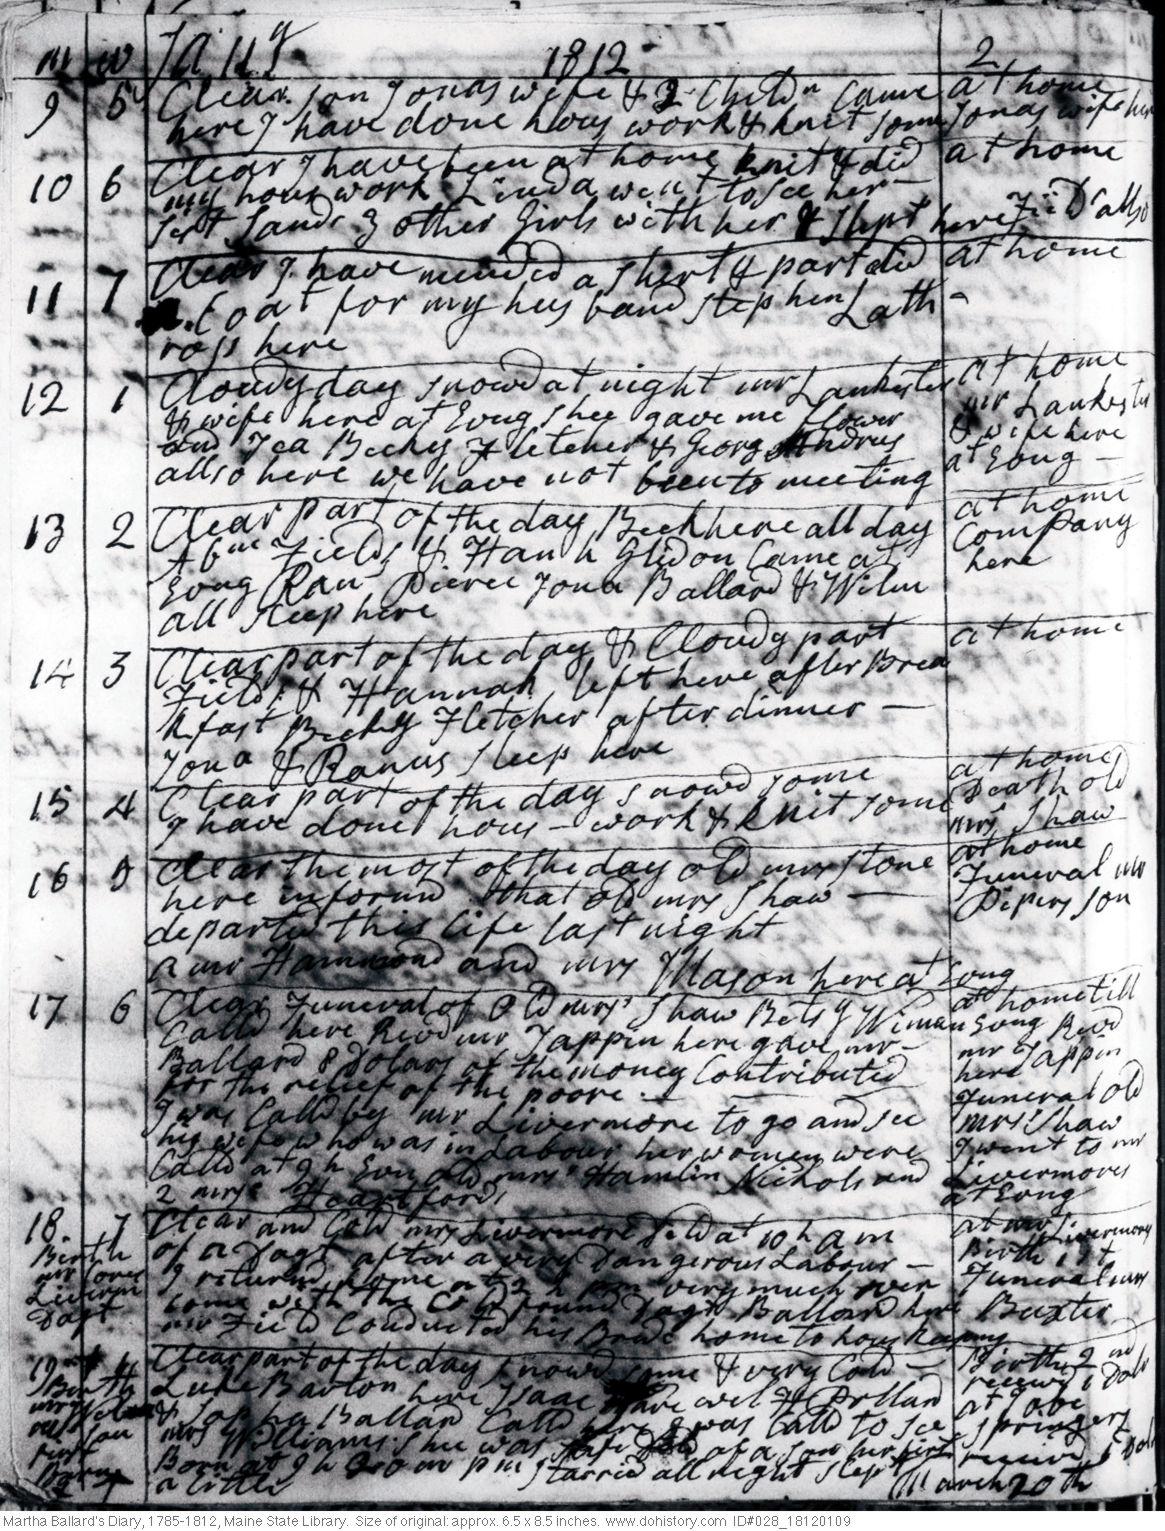 m w Jany 1812 2
9 5 Clear. son Jonas wife & 2 Childn Came at home
here I have done hous work & knit some Jonas wife here
10 6 Clear I have been at home knit & did at home
my hous work Linda went to see her
Sist Sands 3 other Girls with her & Slept here Field allso
11 7 Clear I have mended a Shert & part did at home
a Coat for my husband Stephen Lath-
rops here
12 1 Cloudy day snowd at night mr Lankester at home
& wife here at Evng shee gave me flower mr Lankester
and Tea Becky Fletcher & Georg Andrus & wife here
allso here we have not been to meeting at Evng –
13 2 Clear part of the day Beck here all day at home
Fields & Hanh Glidon Came at Company
Evng Ran Pierce Jona Ballard & Wilm here
all sleep here
14 3 Clear part of the day & Cloudy part at home
Field & Hannah left here after Brea
kfast Becky Fletcher after dinner –
Jona & Ranus sleep here
15 4 Clear part of the day snowd some at home
I have done hous – work & knit some Death old
mrs Shaw
16 5 Clear the most of the day old mrs Stone at home
here informd that old mrs Shaw – Funeral mr
departed this life last night Piperrs son
a mr Hammond and mrs Mason here at Evng
17 6 Clear Funeral of Old mrs Shaw Betsy Wiman at home till
Calld here Revd mr Tappin here gave mr – Evng Revd
Ballard 8 Dolars of the money Contributed mr Tappin
for the relief of the poore. – here
I was Calld by mr Livermore to go and see Funeral old
his wife who was in Labour her women were mrs Shaw
Calld at 9 h Evn old mrs Hamlin Nichols and I went to mr
2 mrs Heartfords Livermores
at Evng
18. 7 Clear and Cold mrs Livermore Deld at 10 h a m at mr Livermors
Birth of a Dagt after a very Dangerous Labour – Birth 1st
I returnd home at 3 h pm very much over Funeral mrs
Liverm come with the Cold found Dagt Ballard here Buxter
Dagt mr Field Conducted his Bride home to hous keeping
19 Clear part of the day snowd some & very Cold – Birth 2nd
Birth Luke Barton here Isaac receivd 1 Dolr
mrs & Sophia Ballard Calld here I was Calld to see at Jobe
son mrs Williams. shee was safe Deld of a son her first Springers
first Born at 9 h 30 m pm I tarried all night Slept receivd 1 Dol
Born a little March 20th
Martha Ballard's Diary, 1785-1812, Maine State Library. Size of original: approx. 6.5 x 8.5 inches. www.dohistory.com ID#028_18120109